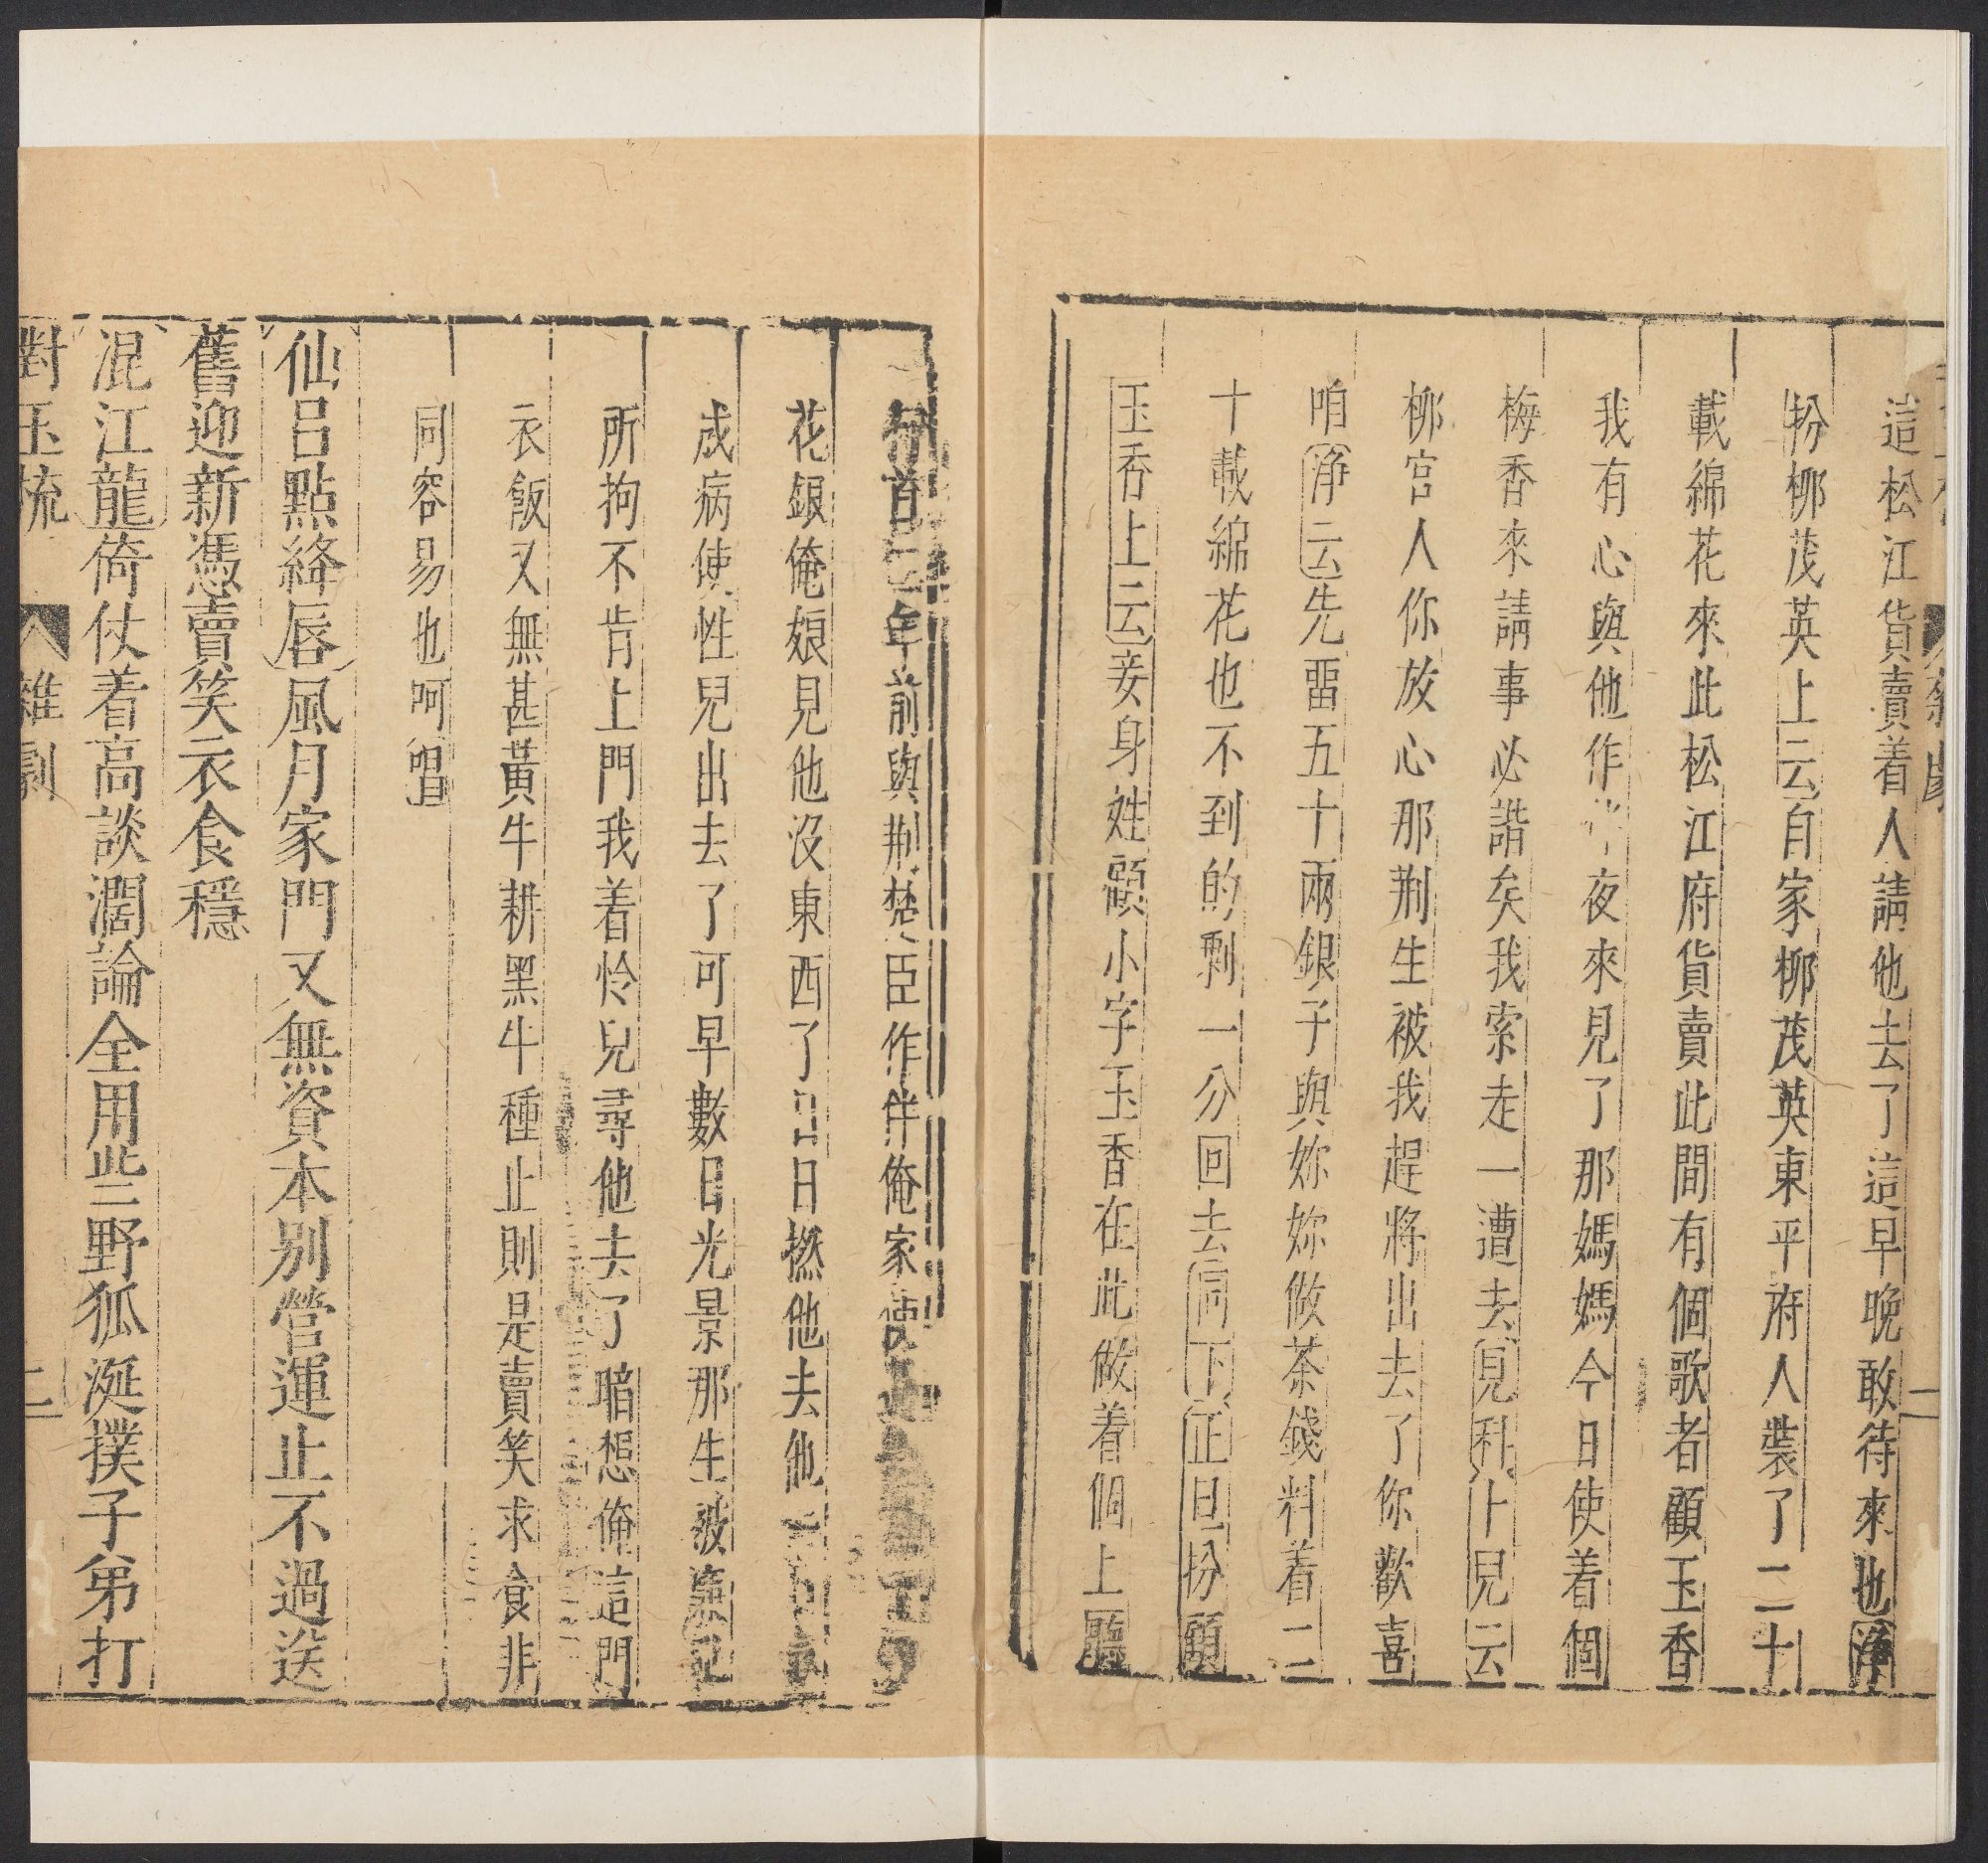 這松江貨賣着人請他去了這早晚敢待來也淨
扮柳茂英上云自家柳茂英東平府人裝了二十
載綿花來此松江府貨賣此間有個歌者顧玉香
我有心與他作夜來見了那媽媽今日使着個
梅香來請事必諧矣我索走一遭去見科卜兒云
柳官人你放心那荆生被我趕將出去了你歡喜
咱淨云先畱五十兩銀子與妳妳做茶錢料着二
十載綿花也不到的剩一分回去同下正旦扮顧
玉香上云妾身姓顧小字玉香在此做着個上廳
行首二年前與荆楚臣作伴俺家使
花銀俺娘見他沒東西了日日撚他去他
成病使性兒出去了可早數日光景那生被
所拘不肯上門我着怜兒尋他去了喒想俺這門
衣飯又無甚黃牛耕黑牛種止則是賣笑求食非
同容易也呵唱
仙呂點絳唇風月家門又無資本別營運止不過送
舊迎新憑賣笑衣食穩
混江龍倚仗着高談濶論全用些野狐涎撲子弟打
對玉梳 雜劇 二